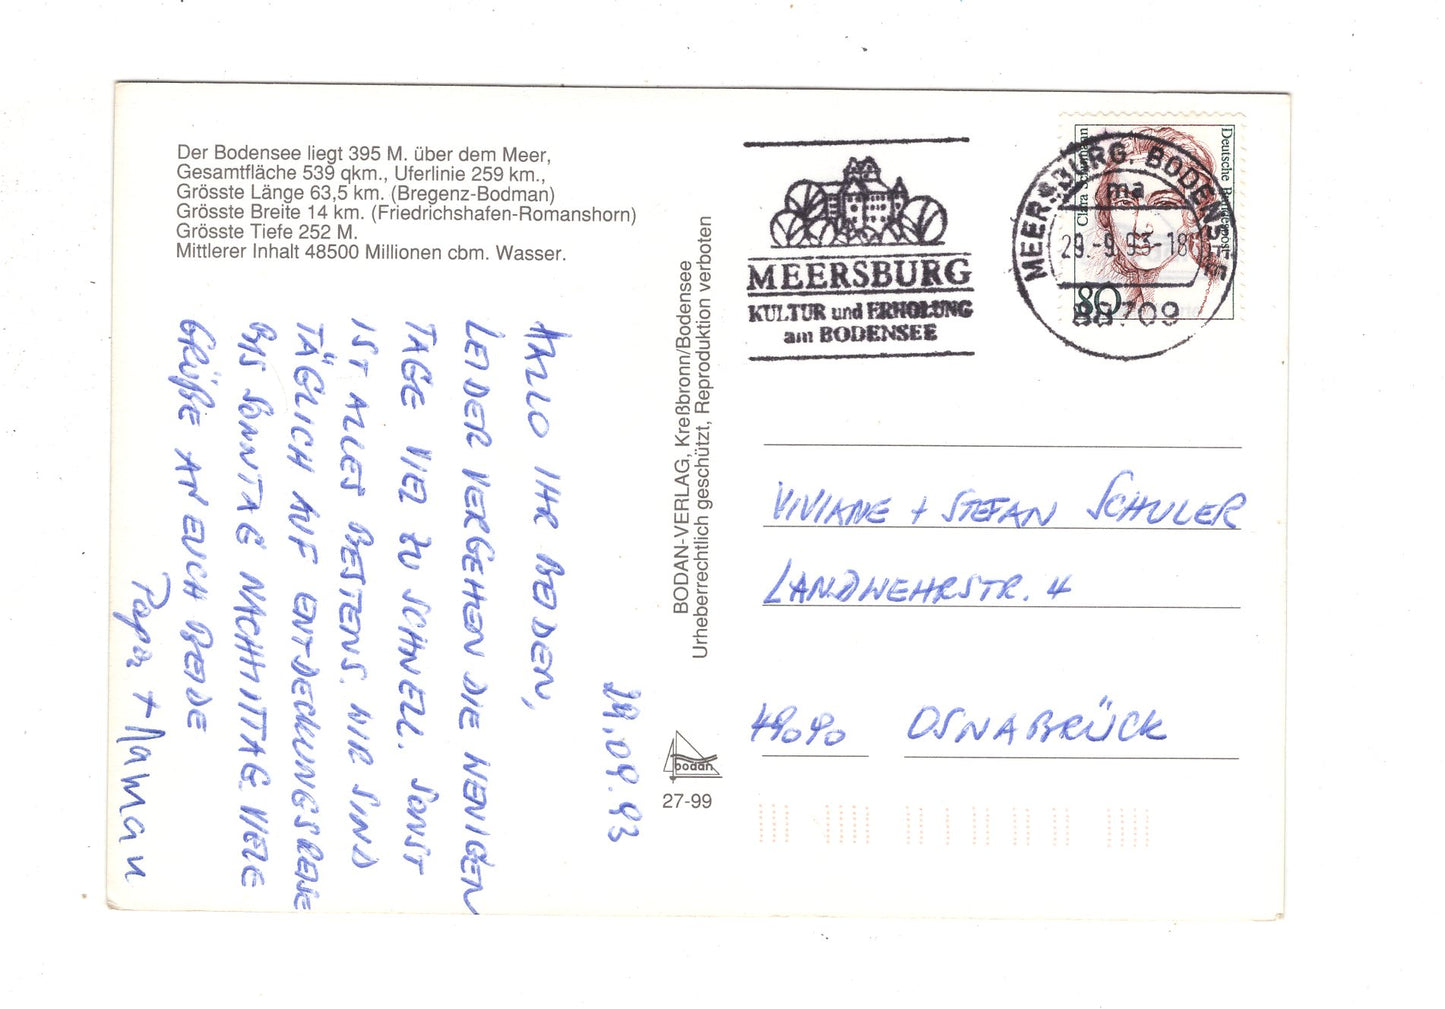 Der Bodensee liegt 395 M. über dem Meer,
Gesamtfläche 539 qkm., Uferlinie 259 km.,
Grösste Länge 63,5 km. (Bregenz-Bodman)
Grösste Breite 14 km. (Friedrichshafen-Romanshorn)
Grösste Tiefe 252 M.
Mittlerer Inhalt 48500 Millionen cbm. Wasser.
29.09.93
HALLO IHR BEIDEN,
LEIDER VERGEHEN DIE WENIGEN
TAGE VIEL ZU SCHNELL. SONST
IST ALLES BESTENS. WIR SIND
TÄGLICH AUF ENTDECKUNGSREISE
BIS SONNTAG NACHMITTAG. VIELE
GRÜßE AN EUCH BEIDE
Papa + Mama
BODAN-VERLAG, Kreßbronn/Bodensee
Urheberrechtlich geschützt, Reproduktion verboten
bodan
27-99
MEERSBURG
KULTUR und ERHOLUNG
am BODENSEE
Deutsche Bundespost
Clara Schumann
80
MEERSBURG, BODENSEE
ma
29.-9.93-18
88709
VIVIANE + STEFAN SCHULER
LANDWEHRSTR. 4
49090 OSNABRÜCK